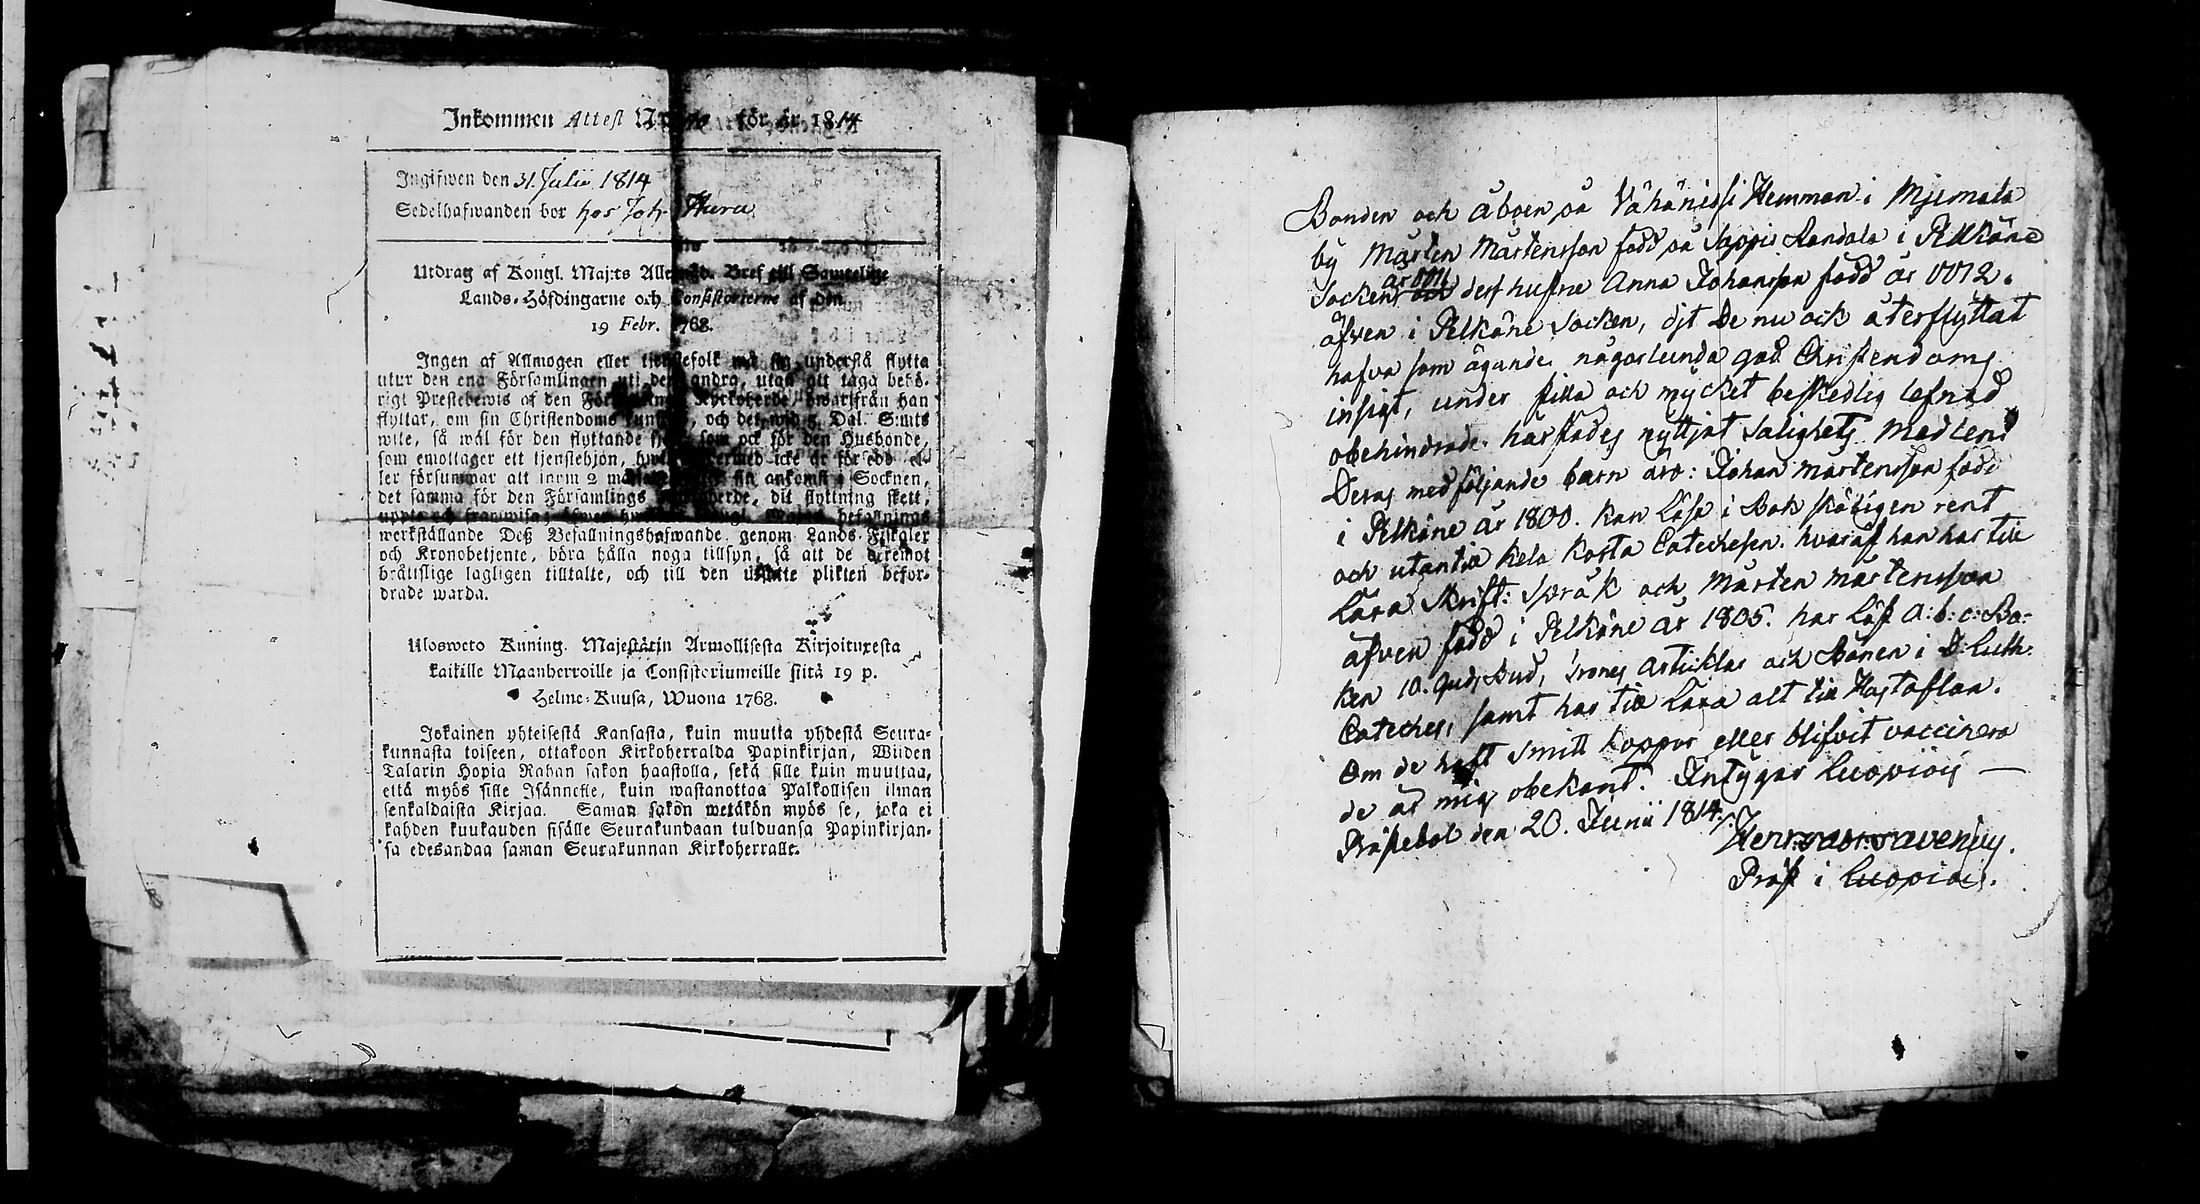 Inkommen Attest för år 1814
Ingifwen den 31. Julii 1814
Sedelhafwanden bor hos Joh
Utdrag af Kongl. Maj:ts Bref till Samtelige
Lands-Höfdingarne och Consistorierne af den
19 Febr. 1768.
Ingen af Allmogen eller tjenstefolk må sig understå flytta
utur den ena Församlingen uti den andra, utan att taga behö-
rigt Prestebewis af den Kyrkoherde, hwarifrån han
flyttar, om sin Christendoms och det wid 5 Dal. S:mts
wite, så wäl för den flyttande som ock för den Husbonde,
som emottager ett tjenstehjon, icke är försedd el-
ler försummar att inom 2 sin ankomst i Socknen,
det samma för den Församlings dit flyttning skett,
befallnings
werkställande Deß Befallningshafwande genom Lands-Fiskaler
och Kronobetjente, böra hålla noga tillsyn, så att de deremot
bråttslige lagligen tilltalte, och till den utsatte plikten befor-
drade warda.
Ulosweto Kuning. Majestätin Armollisesta Kirjoituxesta
kaikille Maanherroille ja Consistoriumeille siitä 19 p.
Helme-Kuusa, Wuona 1768.
Jokainen yhteisestä Kansasta, kuin muutta yhdestä Seura-
kunnasta toiseen, ottakoon Kirkoherralda Papinkirjan, Wiiden
Talarin Hopia Rahan sakon haastolla, sekä sille kuin muuttaa,
että myös sille Isännelle, kuin wastanottaa Palkollisen ilman
senkaldaista Kirjaa. Saman sakon wetäkön myös se, joka ei
kahden kuukauden sisälle Seurakundaan tulduansa Papinkirjan-
sa edesandaa saman Seurakunnan Kirkoherralle.
Bonden och åboen på Vähänissi Hemman i Mjemala
by Mårten Mårtensson född på Sappio Randala i Pelkäne
Socken och dess hustru Anna Johansson född år
äfven i Pelkäne Socken, dit De nu ock återflyttat
hafva som ägande någorlunda god Christendoms
insigt, under stilla och mycket beskedlig lefnad
obehindrade härstädes nyttjat Salighets Medlen
Deras medföljande barn äro: Johan Mårtensson född
i Pelkäne år 1800. kan läsa i Bok skäligen rent
och utantill hela korta Catechesen. hvaraf han har till
Lära Skrift: Språk och Mårten Mårtensson
äfven född i Pelkäne år 1805. har läst A:b:c:Bo-
ken 10. Guds Bud, Trones Articklar och Bönen i D: Luth:
Cateches, samt har till Lära alt till Hustaflan.
Om de haft Smitt koppor eller blifvit vaccinera
de är mig obekant. Intygar Luopiois —
Prästebol den 20. Junii 1814.
Präst i Luopiois.